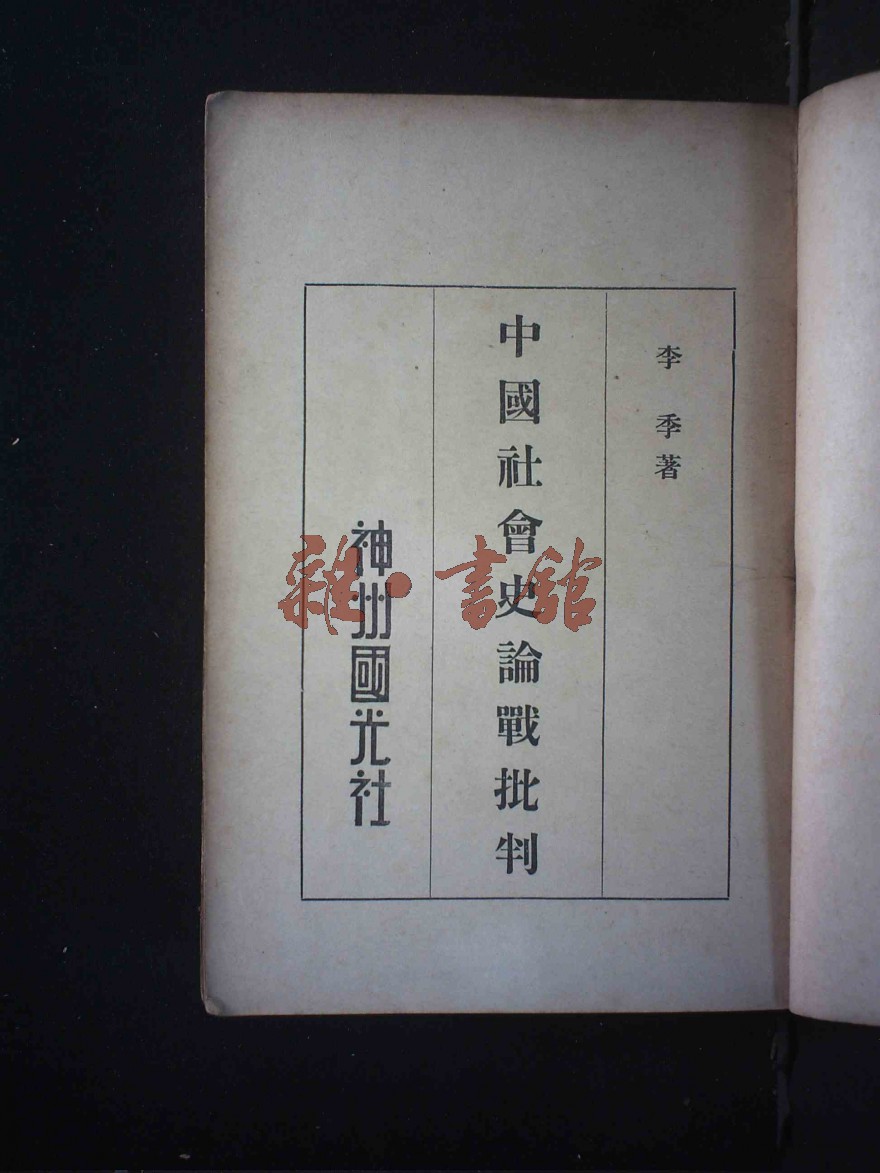 李季著
中國社會史論戰批判
神州國光社
雜·書館